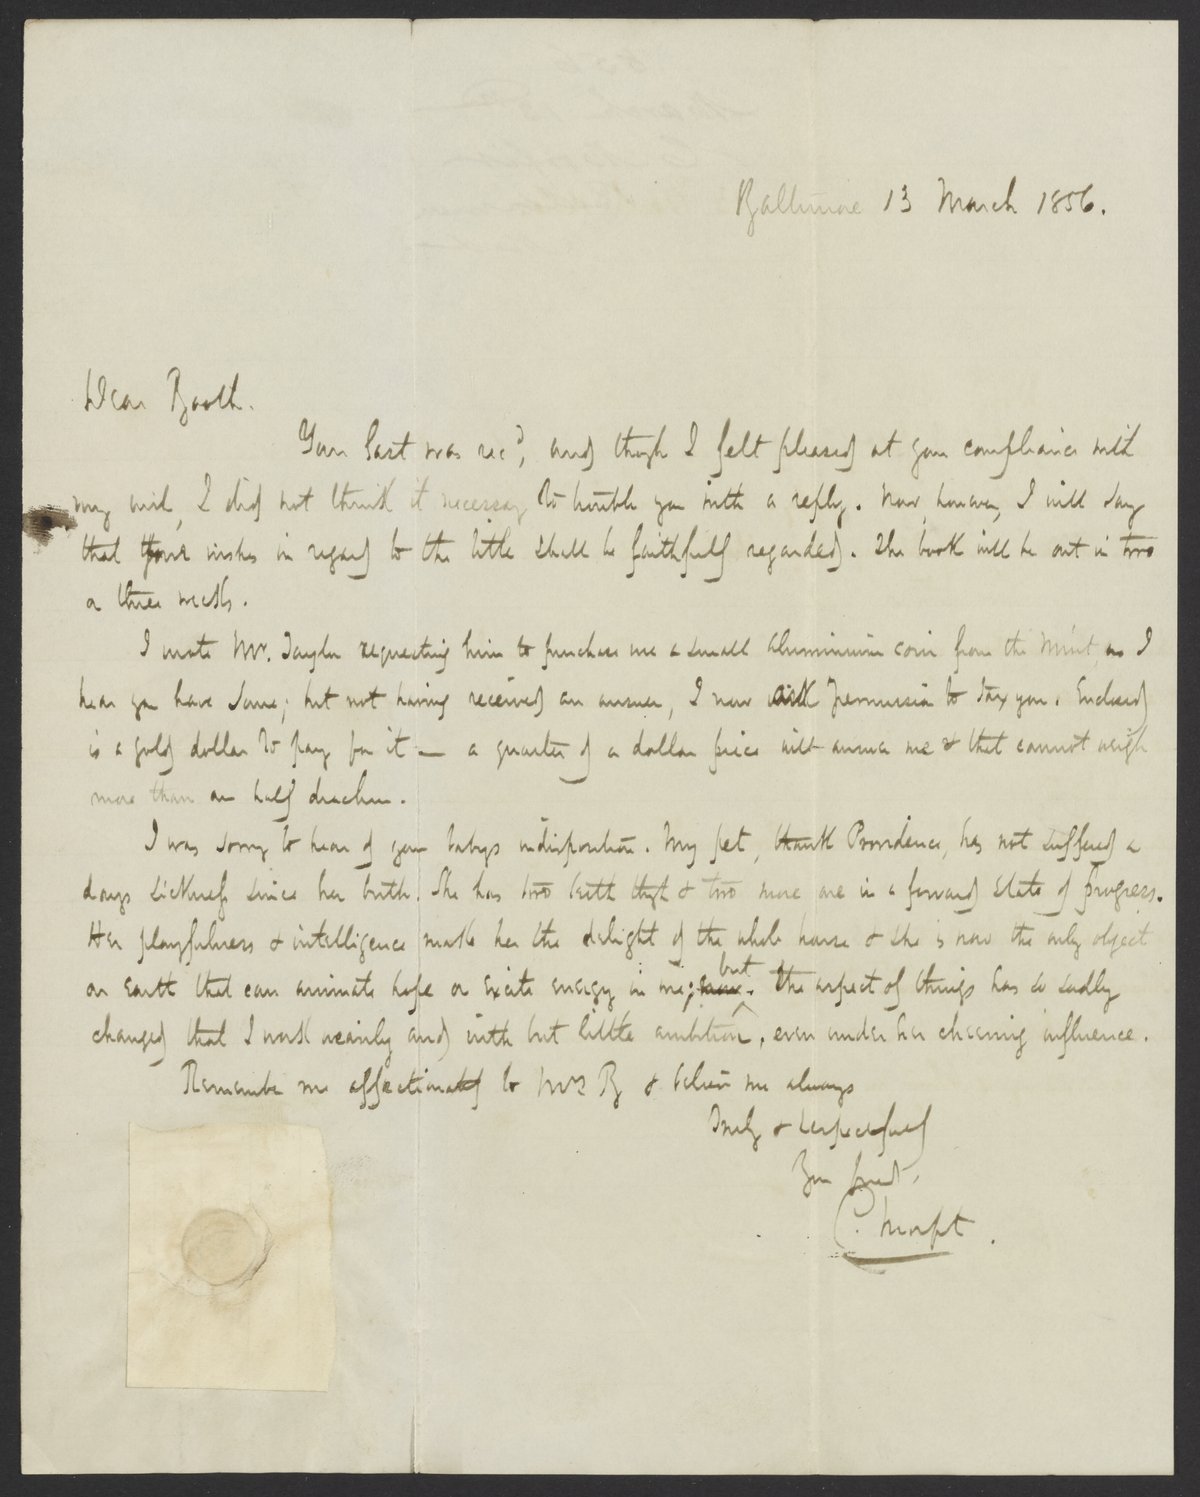 Baltimore 13 March 1856.
Dear Booth.
Your last was rec^d, and though I felt pleased at your compliance with
my wish, I did not think it necessary to trouble you with a reply. Now, however, I will say
that your wishes in regard to the title shall be faithfully regarded. The book will be out in two
or three weeks.
I wrote Mr. Taylor requesting him to purchase me a small aluminium coin from the Mint, as I
hear you have some; but not having received an answer, I now ask permission to tax you. Enclosed
is a gold dollar to pay for it — a quarter of a dollar piece will answer me & that cannot weigh
more than an half drachm.
I was sorry to hear of your babys indisposition. My pet, thank Providence, has not suffered a
days sickness since her birth. She has two teeth thro' & two more are in a forward state of progress.
Her playfulness & intelligence make her the delight of the whole house & she is now the only object
on earth that can animate hope or excite energy in me; but the aspect of things has so sadly
changed that I work wearily and with but little ambition, even under her cheering influence.
Remember me affectionately to Mrs B & believe me always
Truly & respectfully
Your friend,
C. Morfit.